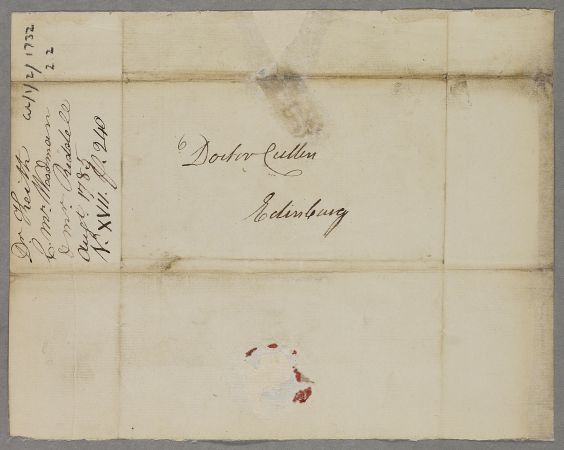 Doctor Cullen
Edinburg
Dr Keith
C. Mr Woodman
& Mr
Augt 1785
N. XVII. P. 240
W/1/2/1732
22